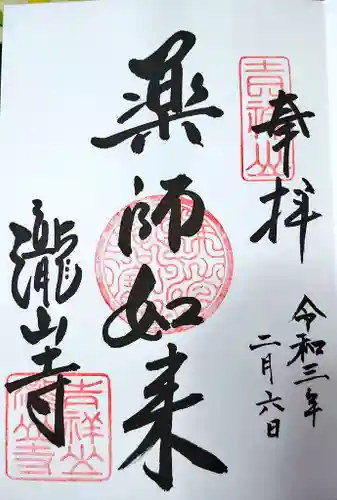 奉拝
吉祥山
令和三年
二月六日
薬師如来
瀧山寺
吉祥山
瀧山寺